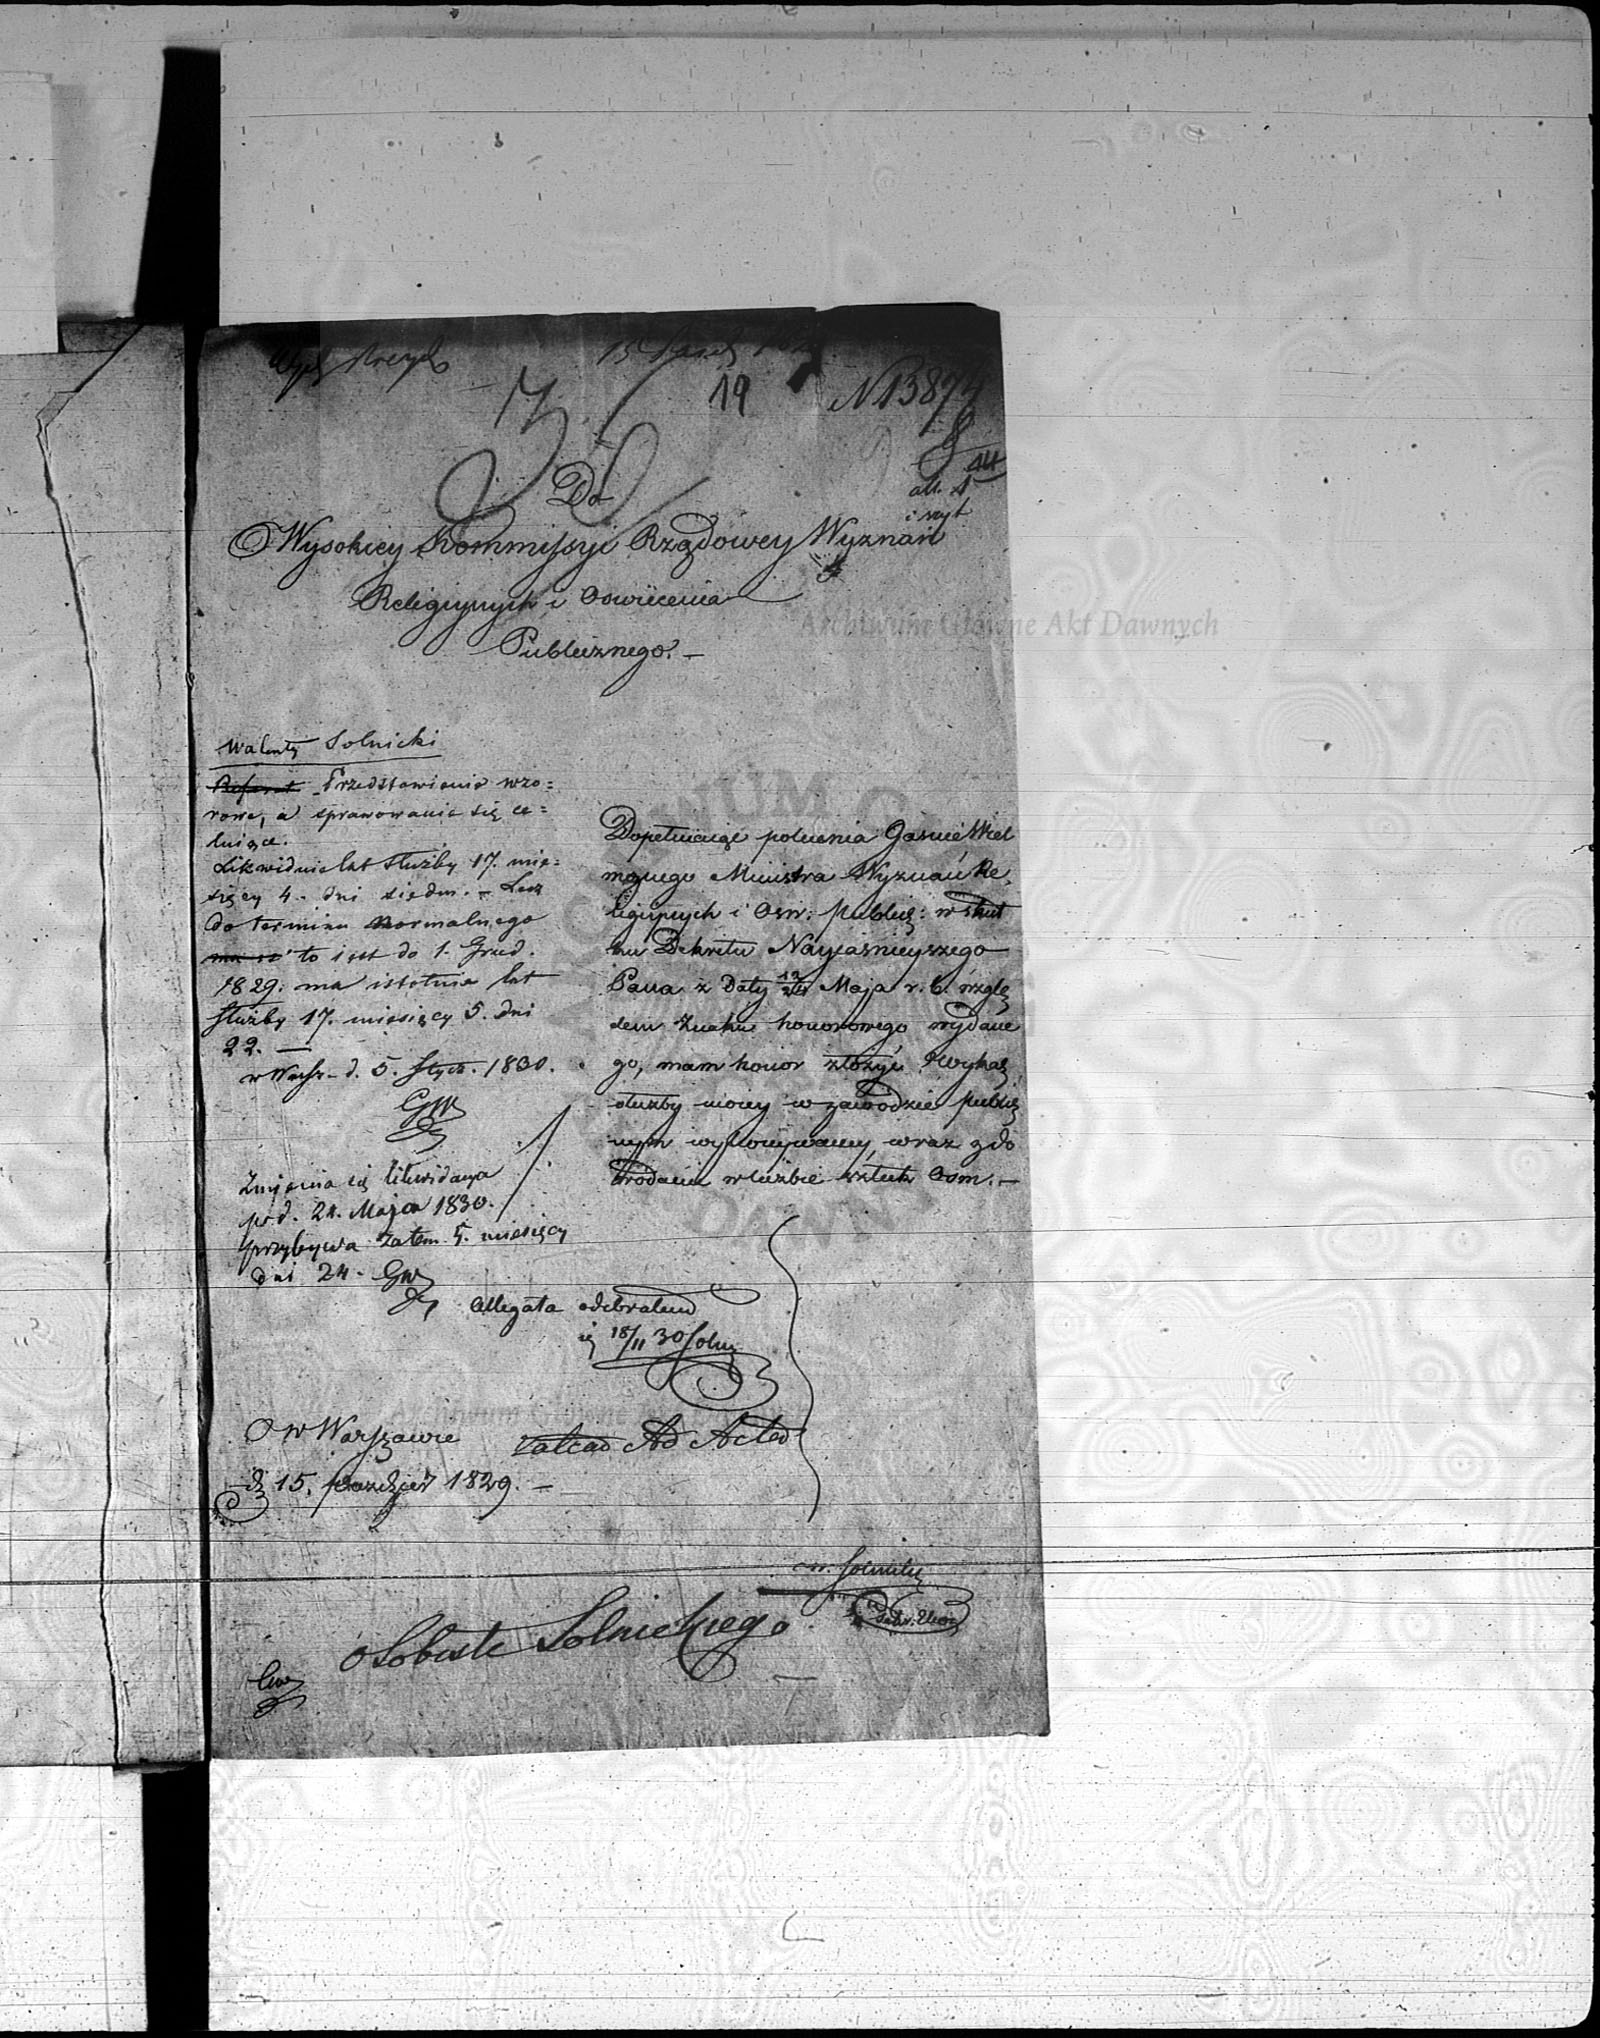 15
17.
19
N 13874
Do
Wysokiey Kommissyi Rządowey Wyznań
Religiynych i Oswiecenia
Publicznego. –
Walenty Solnicki
Przedstawienie wzo=
rowe, a sprawowanie się ce=
luiące.
Likwiduie lat służby 17. mie=
sięcy 4. dni siedm. – Lecz
do terminu normalnego
to iest do 1. Grud.
1829. ma istotnie lat
służby 17. miesięcy 5. dni
22. —
w Warsz. d. 5. Stycz. 1830.
GW
Zmienia się likwidacya
po d. 24. Maja 1830.
przybywa zatem 5. miesięcy
dni 24. GW
Dopełniaiąc polecenia Jasnie Wiel
możnego Ministra Wyznań Re,
ligiynych i Osw: publicz: w skut
ku Dekretu Nayiaśnieyszego
Pana z Daty 12/24 Maja r. b. wzglę
dem Znaku honorowego wydane
go, mam honor złożyć Wykaz
służby moiey w zawodzie public
nym wykonywaney, wraz z do
wodami w liczbie sztuk Osm. –
Allegata odebrałem
18/11 30 Soln
w Warszawie
d. 15. Pazdzier 1829. –
Ad Acta
W. Solnicki
osobiste Solnickiego
GW
Archiwum Główne Akt Dawnych